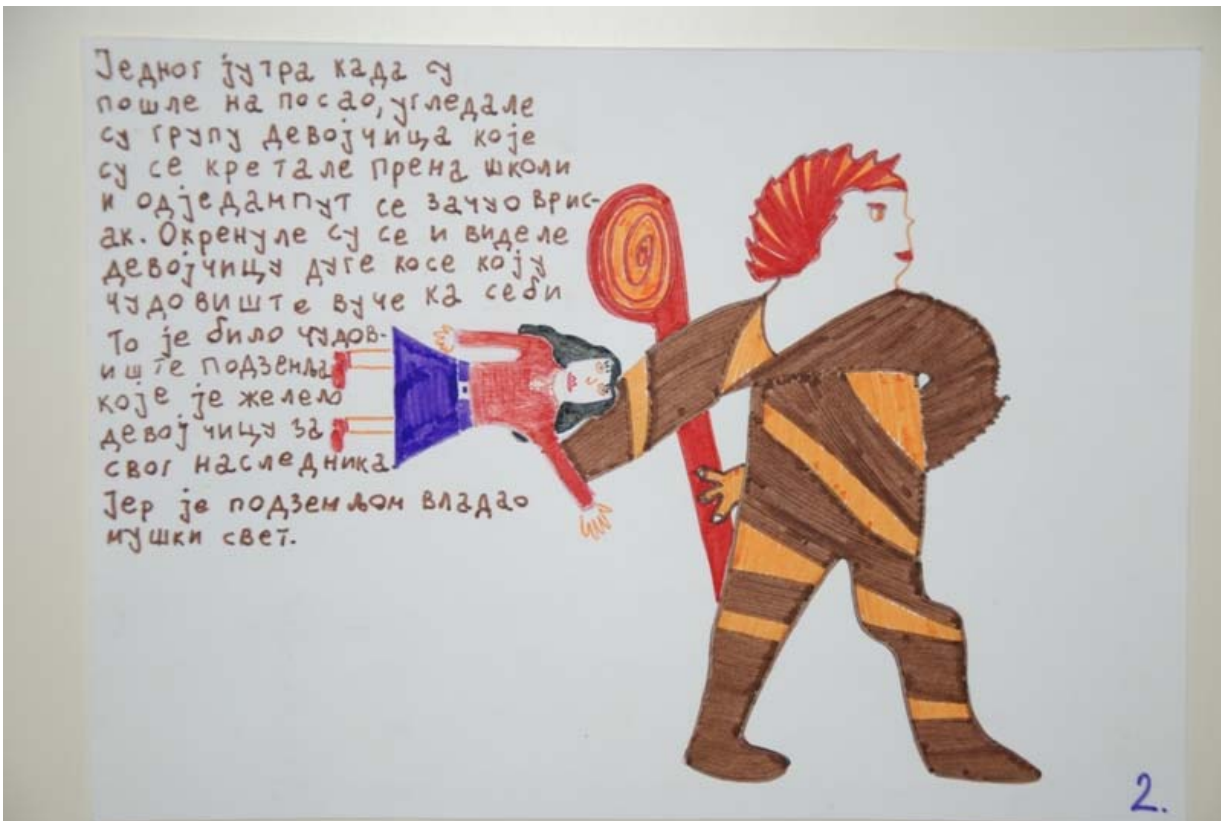 Једног јутра када су
пошле на посао, угледале
су групу девојчица које
су се кретале према школи
и одједампут се зачуо врис-
ак. Окренуле су се и виделе
девојчицу дуге косе коју
чудовиште вуче ка себи
То је било чудов-
иште подземља
које је желело
девојчицу за
свог наследника.
Јер је подземљом владао
мушки свет.
2.